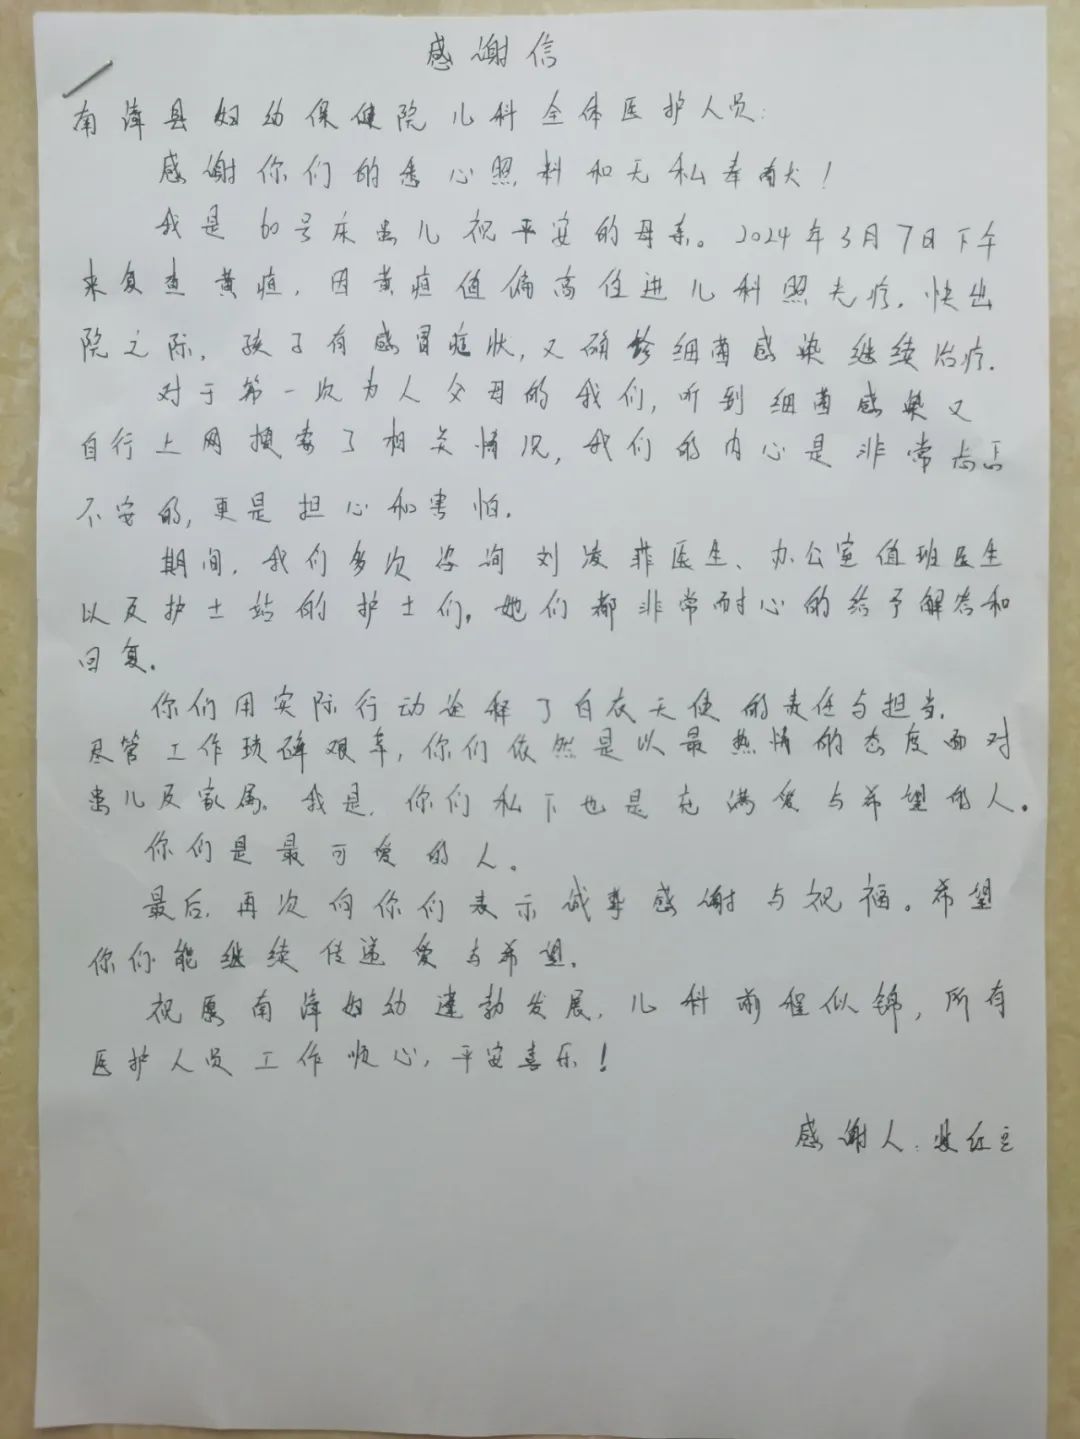 感谢信
南漳县妇幼保健院儿科全体医护人员:
感谢你们的悉心照料和无私奉献!
我是60号床患儿祝平安的母亲。2024年3月7日下午
来复查黄疸,因黄疸值偏高住进儿科照光疗.快出
院之际,孩子有感冒症状,又确诊细菌感染继续治疗.
对于第一次为人父母的我们,听到细菌感染又
自行上网搜索了相关情况,我们的内心是非常忐忑
不安的,更是担心和害怕.
期间,我们多次咨询刘凌菲医生、办公室值班医生
以及护士站的护士们,她们都非常耐心的给予解答和
回复.
你们用实际行动诠释了白衣天使的责任与担当.
尽管工作琐碎艰辛,你们依然是以最热情的态度面对
患儿及家属.我是,你们私下也是充满爱与希望的人。
你们是最可爱的人。
最后,再次向你们表示诚挚感谢与祝福。希望
你们能继续传递爱与希望.
祝愿南漳妇幼蓬勃发展,儿科前程似锦,所有
医护人员工作顺心,平安喜乐!
感谢人: